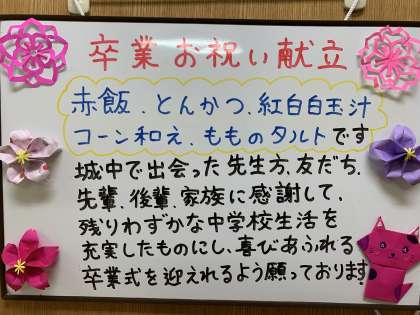 卒業お祝い献立
赤飯、とんかつ、紅白白玉汁
コーン和え、もものタルトです
城中で出会った先生方、友だち、
先輩、後輩、家族に感謝して、
残りわずかな中学校生活を
充実したものにし、喜びあふれる
卒業式を迎えれるよう願っております